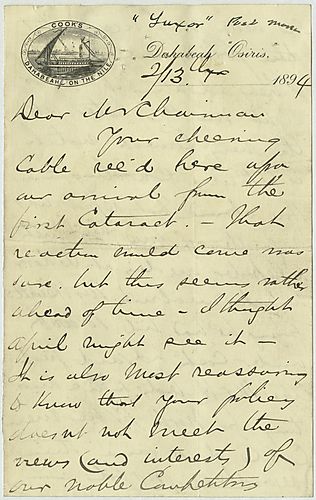 COOK'S
DAHABEAHS ON THE NILE
"Luxor"
Dahabeah "Osiris"
2/13 1894
Dear Mr Chairman
Your cheering
Cable rec'd here upon
our arrival from the
first Cataract. — That
reaction would come was
sure. but this seems rather
ahead of time — I thought
April might see it —
It is also most reassuring
to know that your policy
doesnt not meet the
views (and interests) of
our noble Competitors